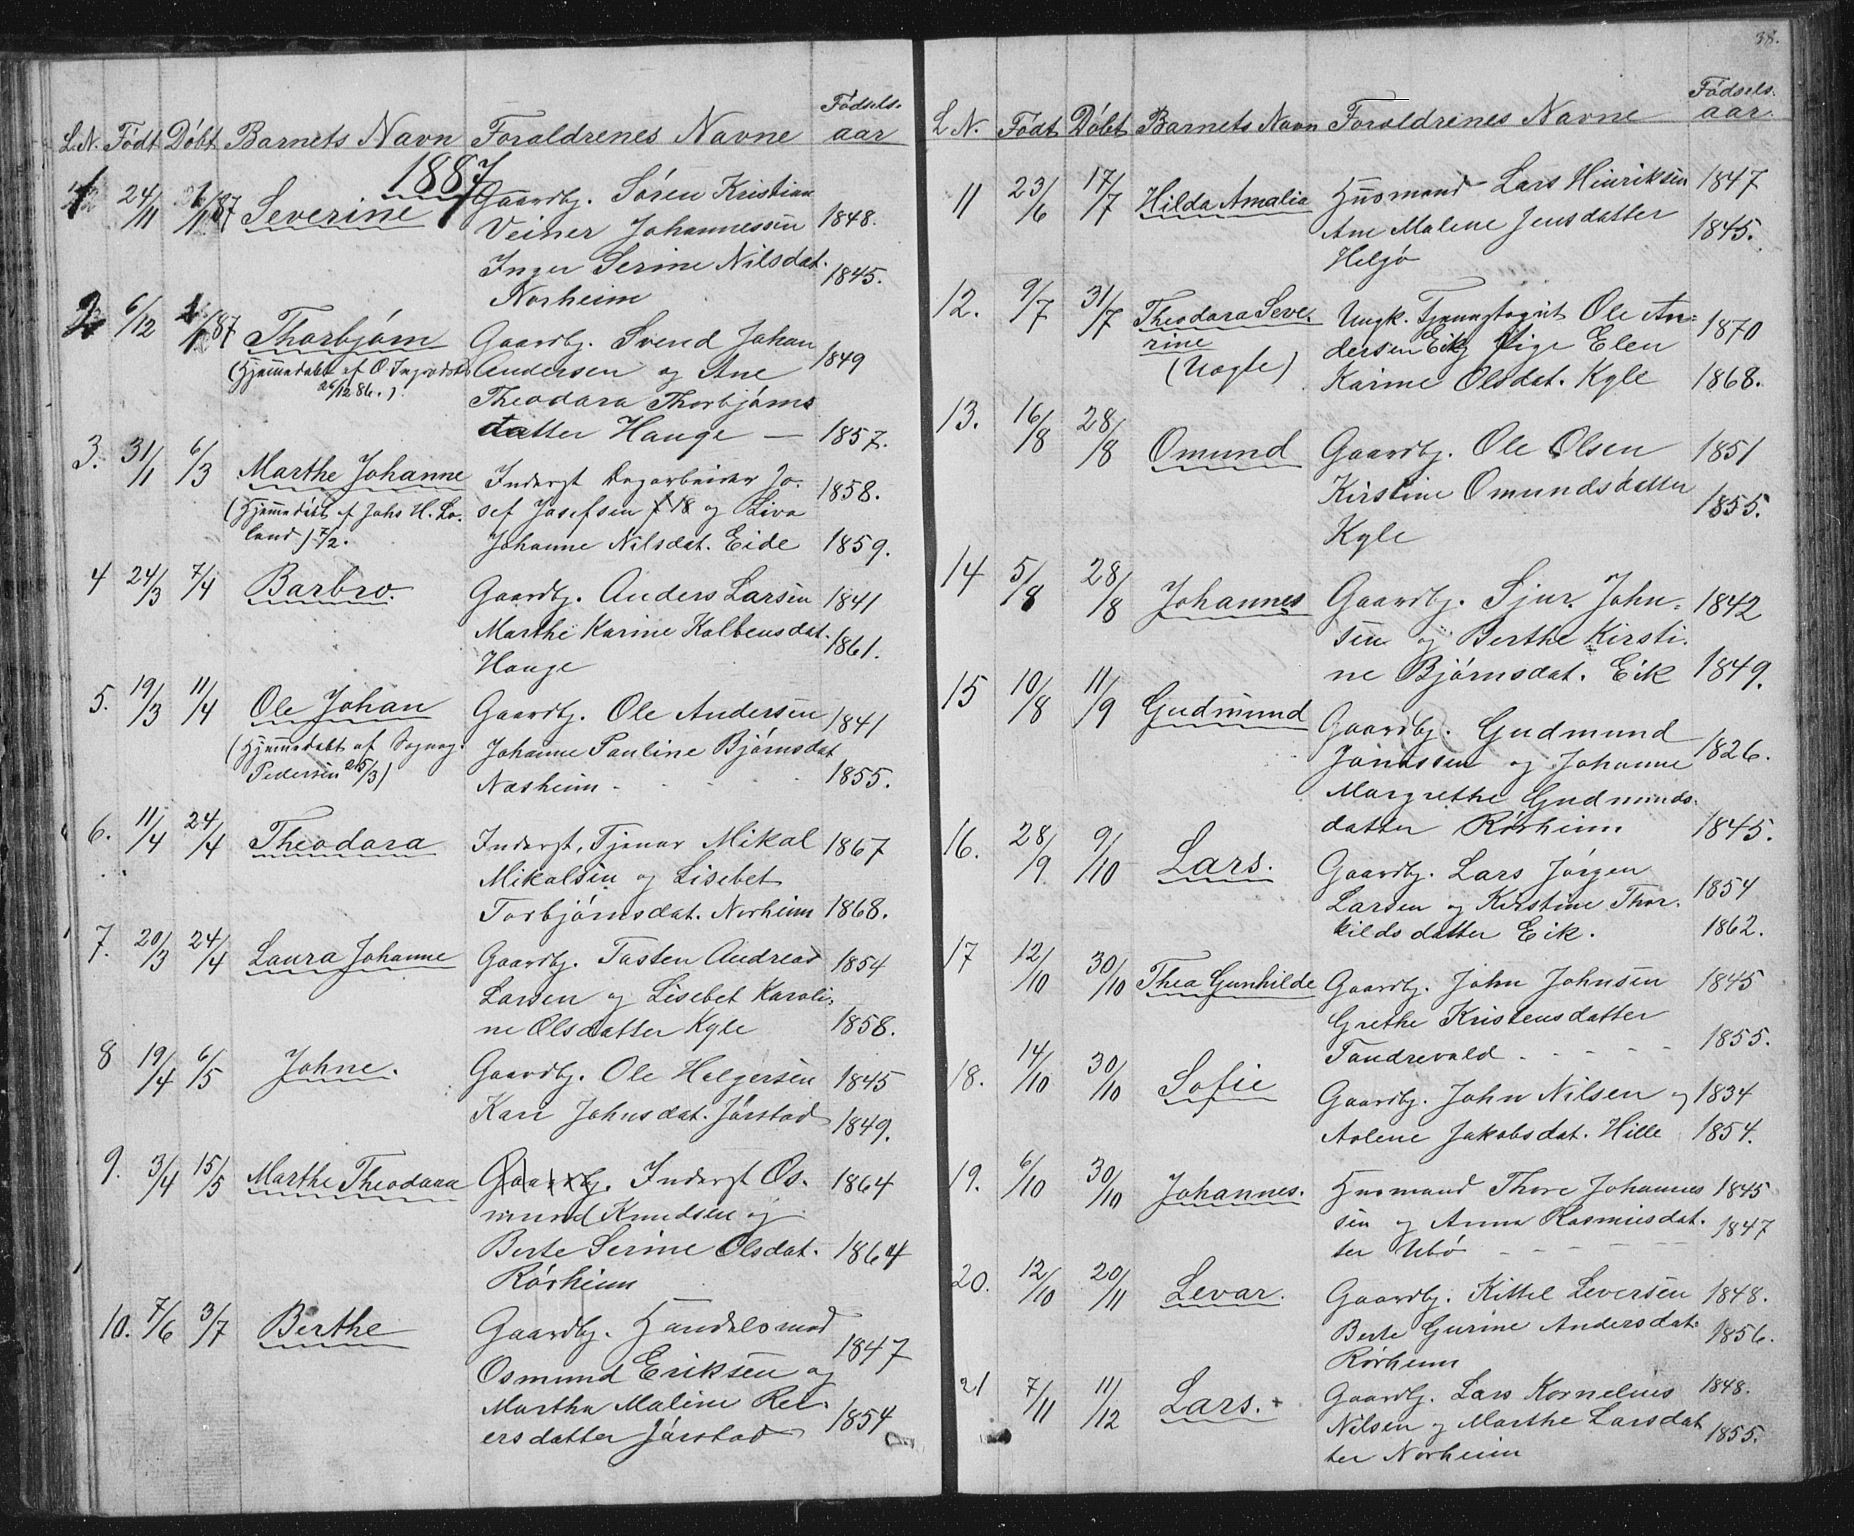 L.N. Født Døbt Barnets Navn Forældrenes Navne Fødsels-
aar
1887
1 24/11 1/1 87 Severine Gaardbr. Søren Kristian
Veiner Johannessen 1848.
Inger Serine Nilsdat. 1845.
Norheim
2 6/12 1/1 87 Thorbjørn Gaardbr. Svend Johan
(Hjemmedøbt af O. Andersen og Ane 1849
26/12 86.) Theodora Thorbjørns
datter Hauge — 1857.
3. 31/1 6/3 Marthe Johanne Inderst Dagarbeider Jo-
(Hjemmedøbt af Johs H. Lo- sef Josefsen og Liva 1858.
land) 7/2. Johanne Nilsdat. Eide 1859.
4 24/3 7/4 Barbro. Gaardbr. Anders Larsen 1841
Marthe Karine Kolbensdat. 1861.
Hauge
5. 19/3 11/4 Ole Johan Gaardbr. Ole Andersen 1841
(Hjemmedøbt af Johanne Pauline Bjørnsdat
Pedersen 25/3) Næsheim - 1855.
6. 11/4 24/4 Theodora Inderst, Tjener Mikal 1867
Mikalsen og Lisebet
Torbjørnsdat. Norheim 1868.
7. 20/3 24/4 Laura Johanne Gaardbr. Tosten Andreas 1854
Larsen og Lisebet Karoli-
ne Olsdatter Kyle 1858.
8 19/4 6/5 Johne. Gaardbr. Ole Helgersen 1845
Kari Johnsdat. Jørstad 1849.
9. 3/4 15/5 Marthe Theodora Gaardbr. Inderst Os- 1864
mund Knudsen og
Berte Serine Olsdat. 1864
Rørheim
10. 7/6 3/7 Berthe Gaardbr. Handelsmand 1847
Osmund Eriksen og
Martha Maline Rei-
ersdatter Jørstad 1854
38.
L.N. Født Døbt Barnets Navn Forældrenes Navne Fødsels-
aar
11 23/6 17/7 Hilda Amalia Husmand Lars Hinriksen 1847
Ane Malene Jensdatter 1845.
Helgø
12. 9/7 31/7 Theodora Seve- Ungk. Ole An- 1870
rine dersen Eik Pige Elen
(Uægte) Karine Olsdat. Kyle 1868.
13. 16/8 28/8 Omund Gaardbr. Ole Olsen 1851
Kirstine Omundsdatter 1855.
Kyle
14 5/8 28/8 Johannes Gaardbr. Sjur. John- 1842
sen og Berthe Kirsti-
ne Bjørnsdat. Eik 1849.
15 10/8 11/9 Gudmund Gaardbr. Gudmund
Jonassen og Johanne 1826.
Margrethe Gudmunds-
datter Rørheim 1845.
16. 28/9 9/10 Lars. Gaardbr. Lars Jørgen
Larsen og Kirstine Thor- 1854
kildsdatter Eik. 1862.
17 12/10 30/10 Thea Gunhilde Gaardbr. John Johnsen 1845
Grethe Kristensdatter
Tandrevold - - - - 1855.
18. 14/10 30/10 Sofie Gaardbr. John Nilsen og 1834
Aolene Jakobsdat. Hille 1854.
19. 6/10 30/10 Johannes. Husmand Thore Johannes 1845
sen og Anna Rasmusdat- 1847
ter Ubø - - - -
20. 12/10 20/11 Levar. Gaardbr. Kittel Leversen 1848.
Berte Gurine Andersdat. 1856.
Rørheim
21 7/11 11/12 Lars. Gaardbr. Lars Kornelius 1848.
Nilsen og Marthe Larsdat 1855.
ter Norheim